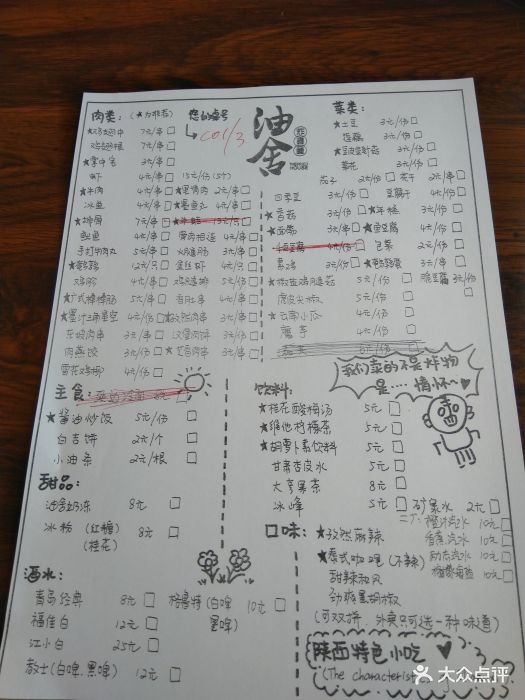 肉类: (★为推荐) 您的桌号
C01/3
油舍
炸串铺
★鸡翅中 7元/串
鸡翅根 7元/串
★掌中宝 3元/串
虾 4元/串 15元/份(5个)
★牛肉 4元/串 ★里脊肉 2元/串
鱼 4元/串 ★墨鱼丸 4元/串
★排骨 7元/串
鱿鱼 4元/串 骨肉相连 4元/串
手打牛肉丸 5元/串 火腿肠 3元/串
12元/只 虾 4元/份
鸡胗 4元/串 鸡排 5元/份
★广式棒棒肠 5元/串 香肚串 3元/串
★墨汁三角星空 4元/份 ★孜然肉串 3元/串
里脊肉串 3元/串 汉堡肉饼 3元/份
肉燕饺 3元/份 3元/串
雪花鸡柳 4元/份
菜类:
★土豆 3元/份
莲藕 3元/份
3元/份
菜花 3元/份
茄子 2元/串 豆干 2元/串
四季豆 3元/份 豆腐干 4元/份
★香菇 3元/份 ★年糕 3元/份
3元/份 ★鱼豆腐 2元/串
千页豆腐 4元/份 包菜 2元/串
3元/份 2元/串
5元/份 脆豆腐 3元/份
虎皮尖椒 5元/份
★云南小瓜 4元/份
4元/份
主食:
★酱油炒饭 5元/份
白吉饼 2元/个
小油条 2元/根
甜品:
油舍奶冻 8元
冰粉 (红糖) 8元
(桂花)
酒水:
青岛经典 8元 格鲁特 (白啤 10元
福佳白 12元 黑啤)
江小白 25元
教士(白啤,黑啤) 12元
我们卖的不是炸物
是....情怀~♥
饮料:
★桂花酸梅汤 5元
★维他柠檬茶 5元
★胡萝卜素饮料 5元
甘肃杏皮水 5元
大亨果茶 8元
冰峰 5元 矿泉水 2元
二厂: 橙汁汽水 10元
香蕉汽水 10元
10元
10元
口味:
★孜然麻辣
★泰式咖喱 (不辣)
甜辣和风
劲爽黑胡椒
(可双拼,外卖只可选一种味道)
陕西特色小吃 ♥
(The characteristic
大众点评